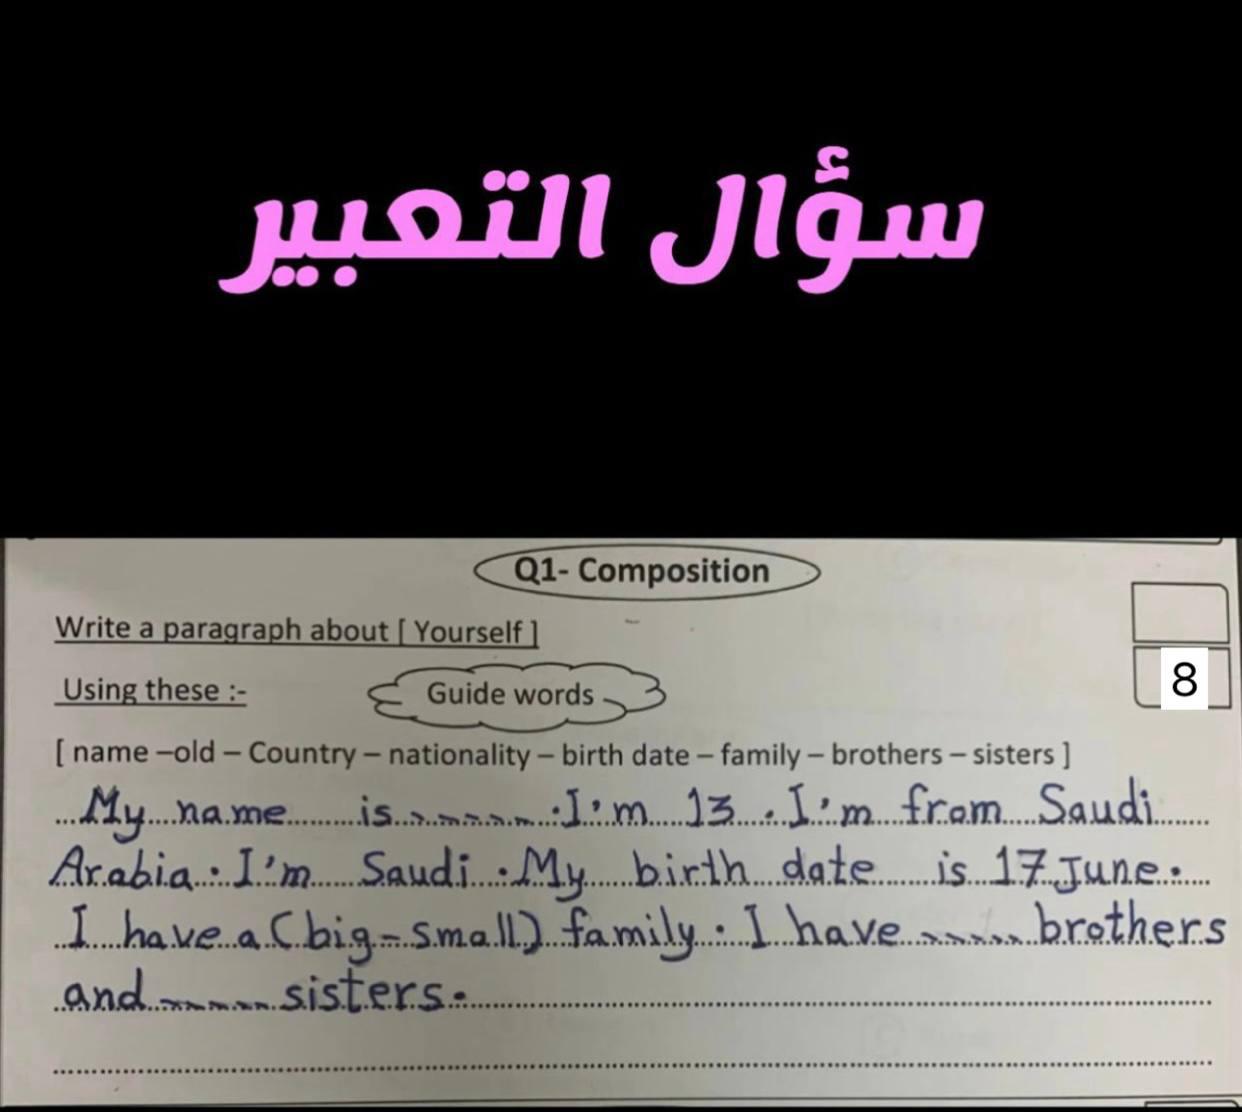 سؤال التعبير
Q1- Composition
Write a paragraph about [ Yourself ]
8
Using these :-
Guide words
[ name –old – Country – nationality – birth date – family – brothers – sisters ]
My name is ........ . I'm 13 . I'm from Saudi
Arabia . I'm Saudi . My birth date is 17 June .
I have a (big-small) family . I have ..... brothers
and ...... sisters .